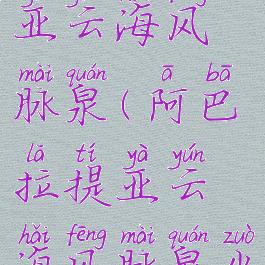 亚云海风
mài quán ā bā
脉泉(阿巴
lā tí yà yún
拉提亚云
hǎi fēng mài quán zuò
海风脉泉